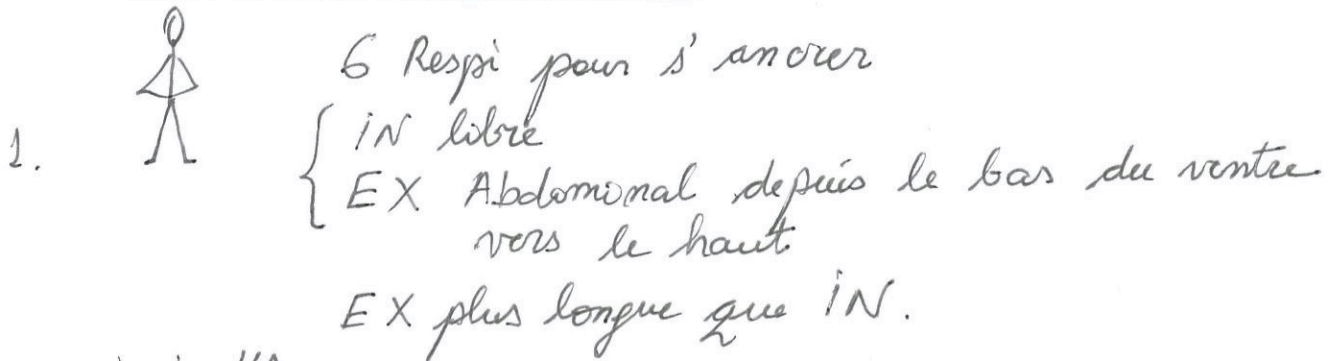 6 Respi pour s'ancrer
1.
IN libre
EX Abdomonal depuis le bas du ventre
vers le haut
EX plus longue que IN.